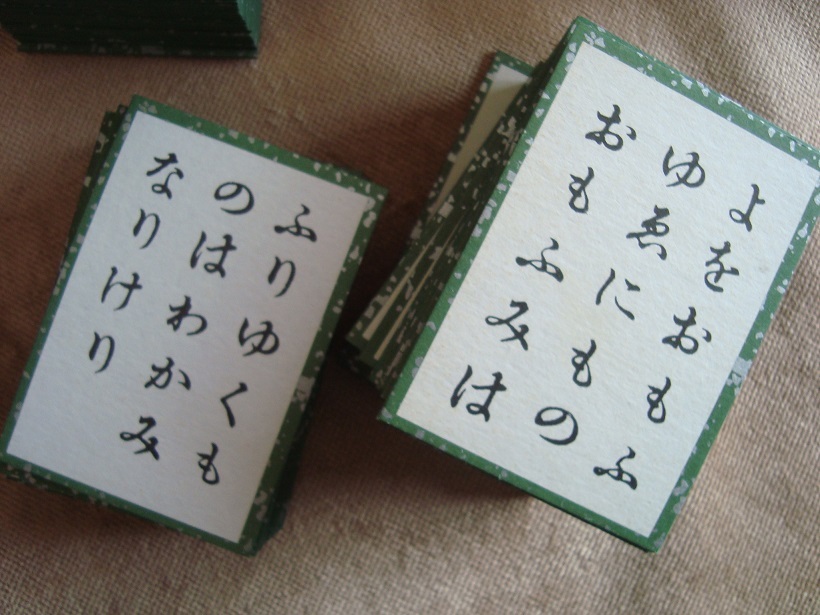 よをおもふ
ゆゑにもの
おもふみは
ふりゆくも
のはわかみ
なりけり